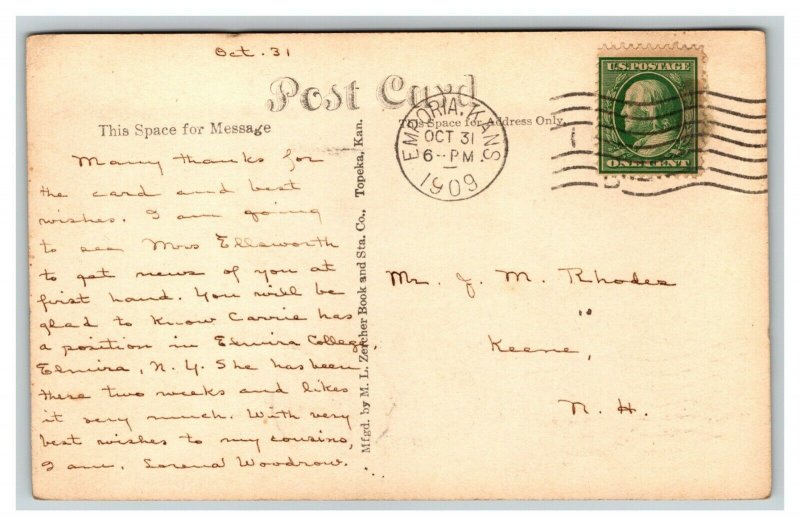 Oct. 31
Post Card
This Space for Message
This Space for Address Only.
EMPORIA, KANS
OCT 31
6--PM
1909
U.S. POSTAGE
ONE CENT
Many thanks for
the card and best
wishes. I am going
to see Mrs Ellsworth
to get news of you at
first hand. You will be
glad to know Carrie has
a position in Elmira College,
Elmira, N.Y. She has been
there two weeks and likes
it very much. With very
best wishes to my cousins,
I am, Lorena Woodrow.
Mfgd. by M. L. Zercher Book and Sta. Co., Topeka, Kan.
Mr. J. M. Rhodes
"
Keene,
N. H.